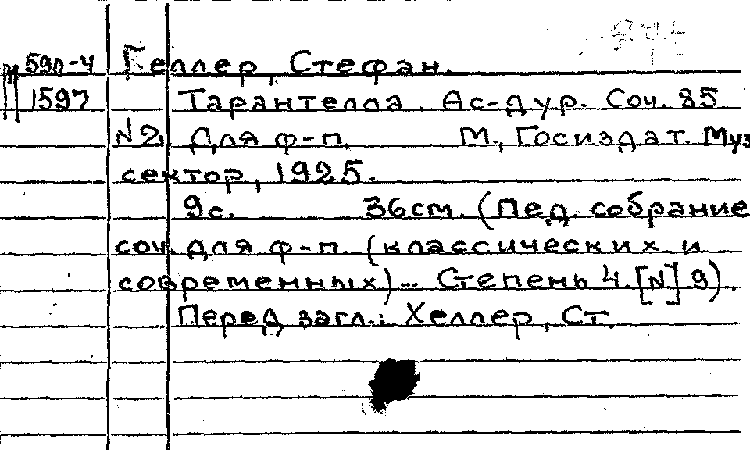 М 590-4 Геллер, Стефан.
1597 Тарантелла. Ас-дур. Соч. 85
N2. Для ф-п. М., Госиздат. Муз
сектор, 1925.
9с. 36см. (Пед. собрание
соч. для ф-п. (классических и
современных)... Степень 4. [N] 9).
Перед загл.: Хеллер, Ст.